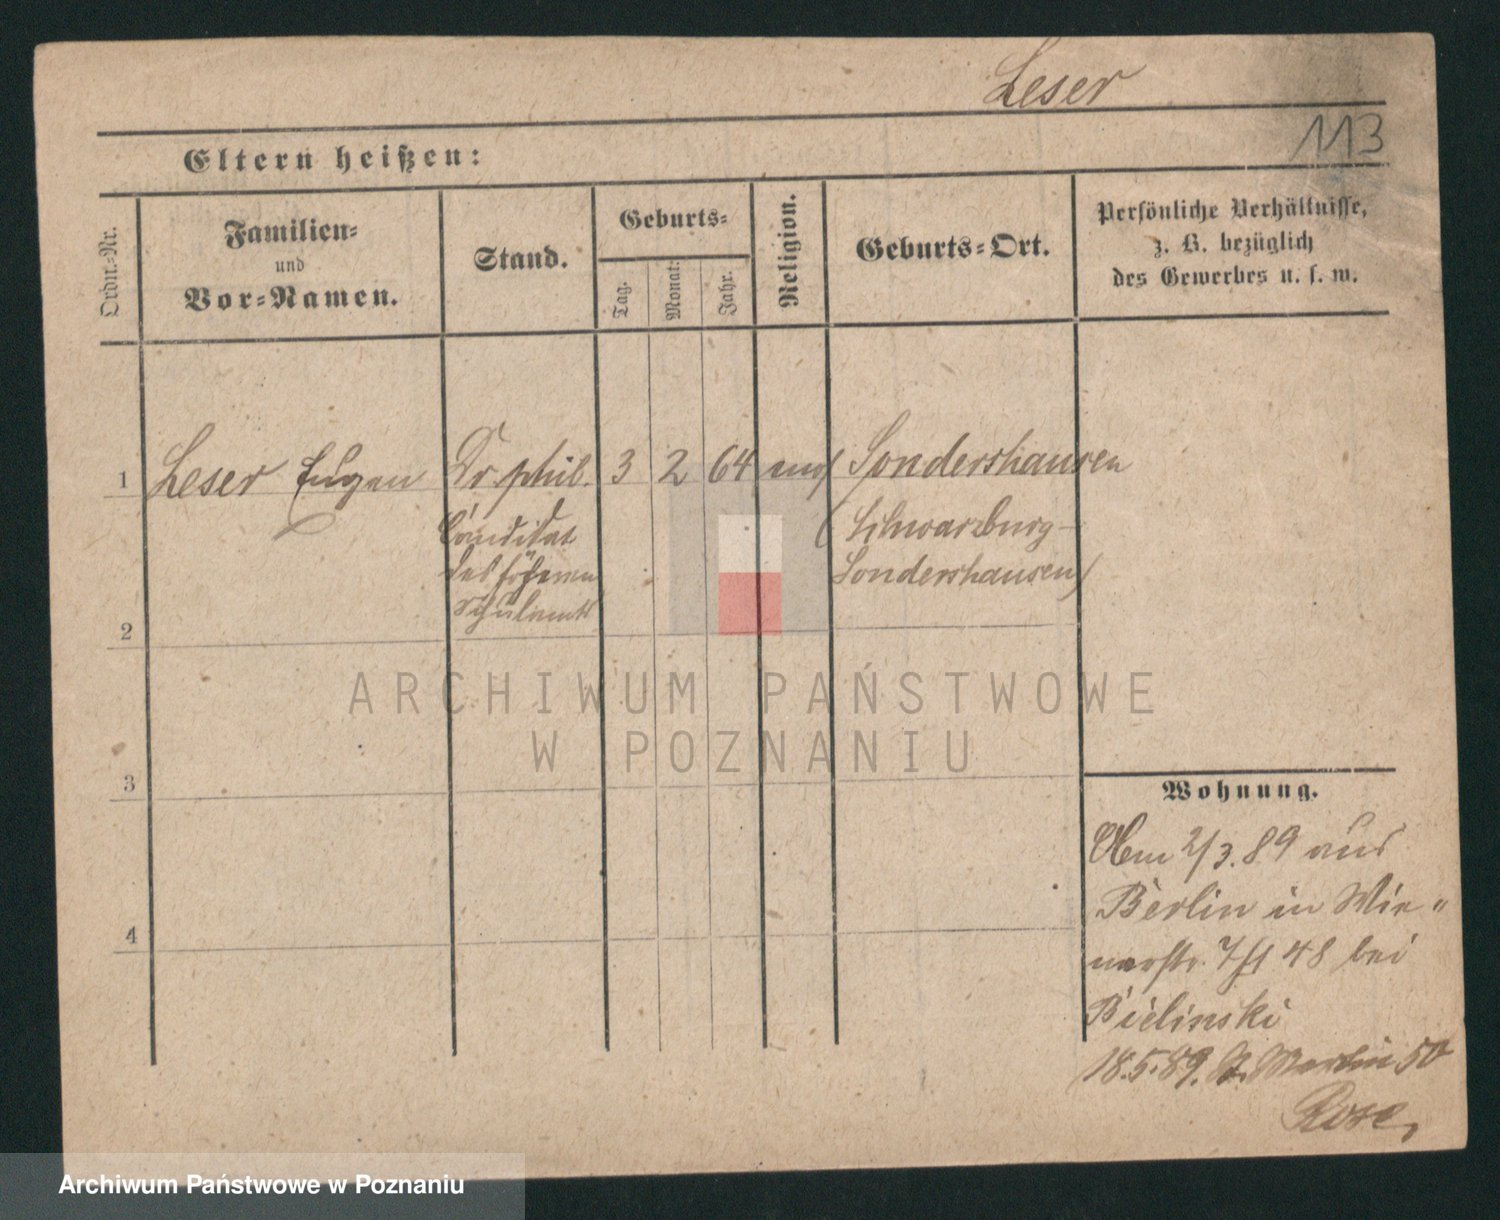 Leser
113
Eltern heißen:
Ordn.-Nr.
Familien-
und
Vor-Namen.
Stand.
Geburts-
Tag.
Monat.
Jahr.
Religion.
Geburts-Ort.
Persönliche Verhältnisse,
z. B. bezüglich
des Gewerbes u. s. w.
1 Leser Eugen Dr. phil. 3 2 64 mos Sondershausen
Candidat (Schwarzburg-
des höheren Sondershausen)
Schulamts
2
3
4
Wohnung.
Am 2/3.89 aus
Berlin in Wie-
nerstr. 7/H 48 bei
Bielinski
18.5.89. St. Martin 50
Rose,
ARCHIWUM PAŃSTWOWE
W POZNANIU
Archiwum Państwowe w Poznaniu